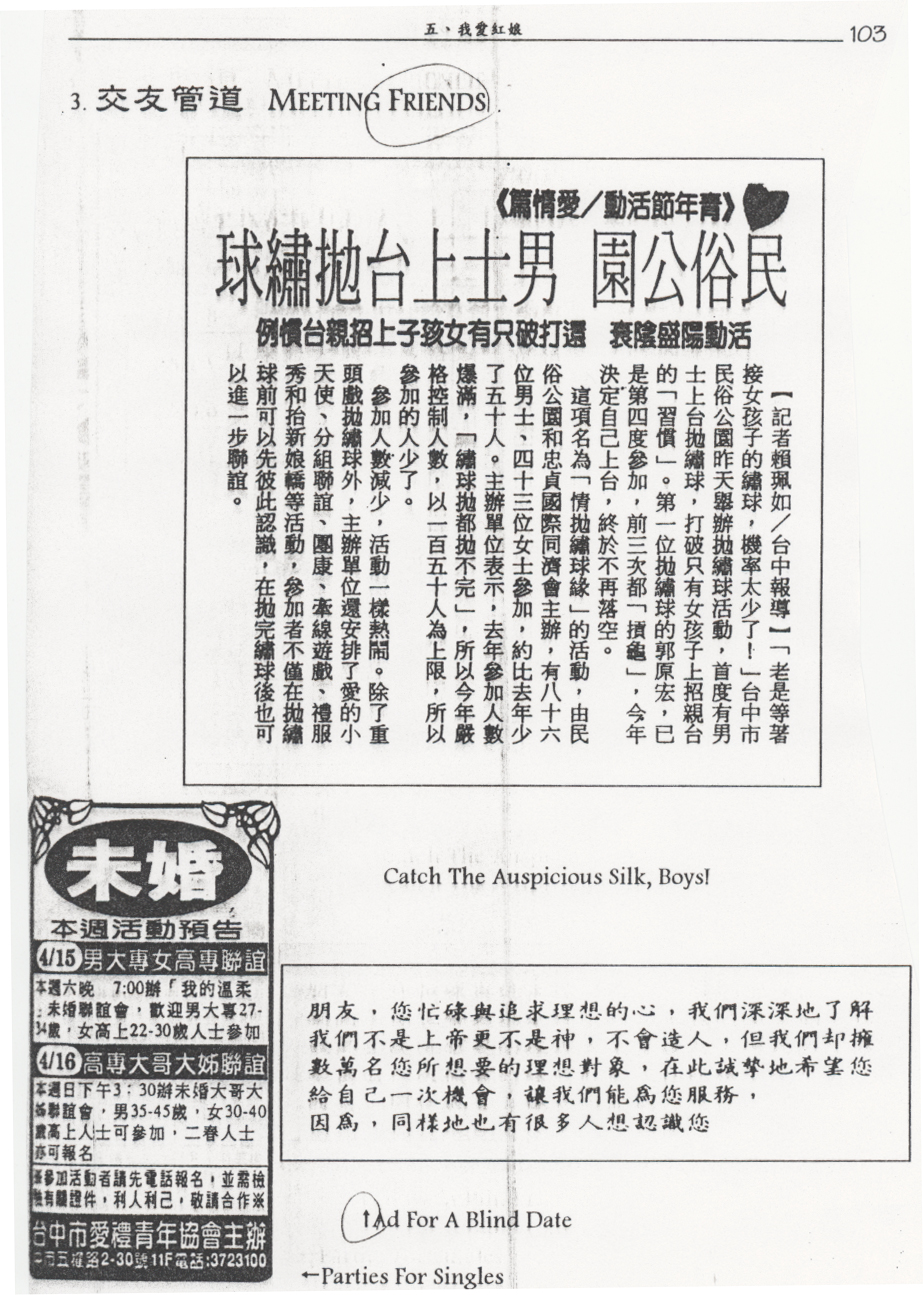 五、我愛紅娘
103
3. 交友管道 MEETING FRIENDS
《青年節活動／愛情篇》
民俗公園 男士上台拋繡球
活動陽盛陰衰 還打破只有女孩子上招親台慣例
【記者賴珮如／台中報導】「老是等著
接女孩子的繡球，機率太少了！」台中市
民俗公園昨天舉辦拋繡球活動，首度有男
士上台拋繡球，打破只有女孩子上招親台
的「習慣」。第一位拋繡球的郭原宏，已
是第四度參加，前三次都「摃龜」，今年
決定自己上台，終於不再落空。
這項名為「情拋繡球緣」的活動，由民
俗公園和忠貞國際同濟會主辦，有八十六
位男士、四十三位女士參加，約比去年少
了五十人。主辦單位表示，去年參加人數
爆滿，「繡球拋都拋不完」，所以今年嚴
格控制人數，以一百五十人為上限，所以
參加的人少了。
參加人數減少，活動一樣熱鬧。除了重
頭戲拋繡球外，主辦單位還安排了愛的小
天使、分組聯誼、團康、牽線遊戲、禮服
秀和抬新娘轎等活動，參加者不僅在拋繡
球前可以先彼此認識，在拋完繡球後也可
以進一步聯誼。
Catch The Auspicious Silk, Boys!
未婚
本週活動預告
4/15 男大專女高專聯誼
本週六晚 7:00辦「我的溫柔
」未婚聯誼會，歡迎男大專27-
34歲，女高上22-30歲人士參加
4/16 高專大哥大姊聯誼
本週日下午3：30辦未婚大哥大
姊聯誼會，男35-45歲，女30-40
歲高上人士可參加，二春人士
亦可報名
※參加活動者請先電話報名，並需檢
驗有關證件，利人利己，敬請合作※
台中市愛禮青年協會主辦
中市五權路2-30號11F電話:3723100
朋友，您忙碌與追求理想的心，我們深深地了解
我們不是上帝更不是神，不會造人，但我們却擁
數萬名您所想要的理想對象，在此誠摯地希望您
給自己一次機會，讓我們能為您服務，
因為，同樣地也有很多人想認識您
↑Ad For A Blind Date
←Parties For Singles